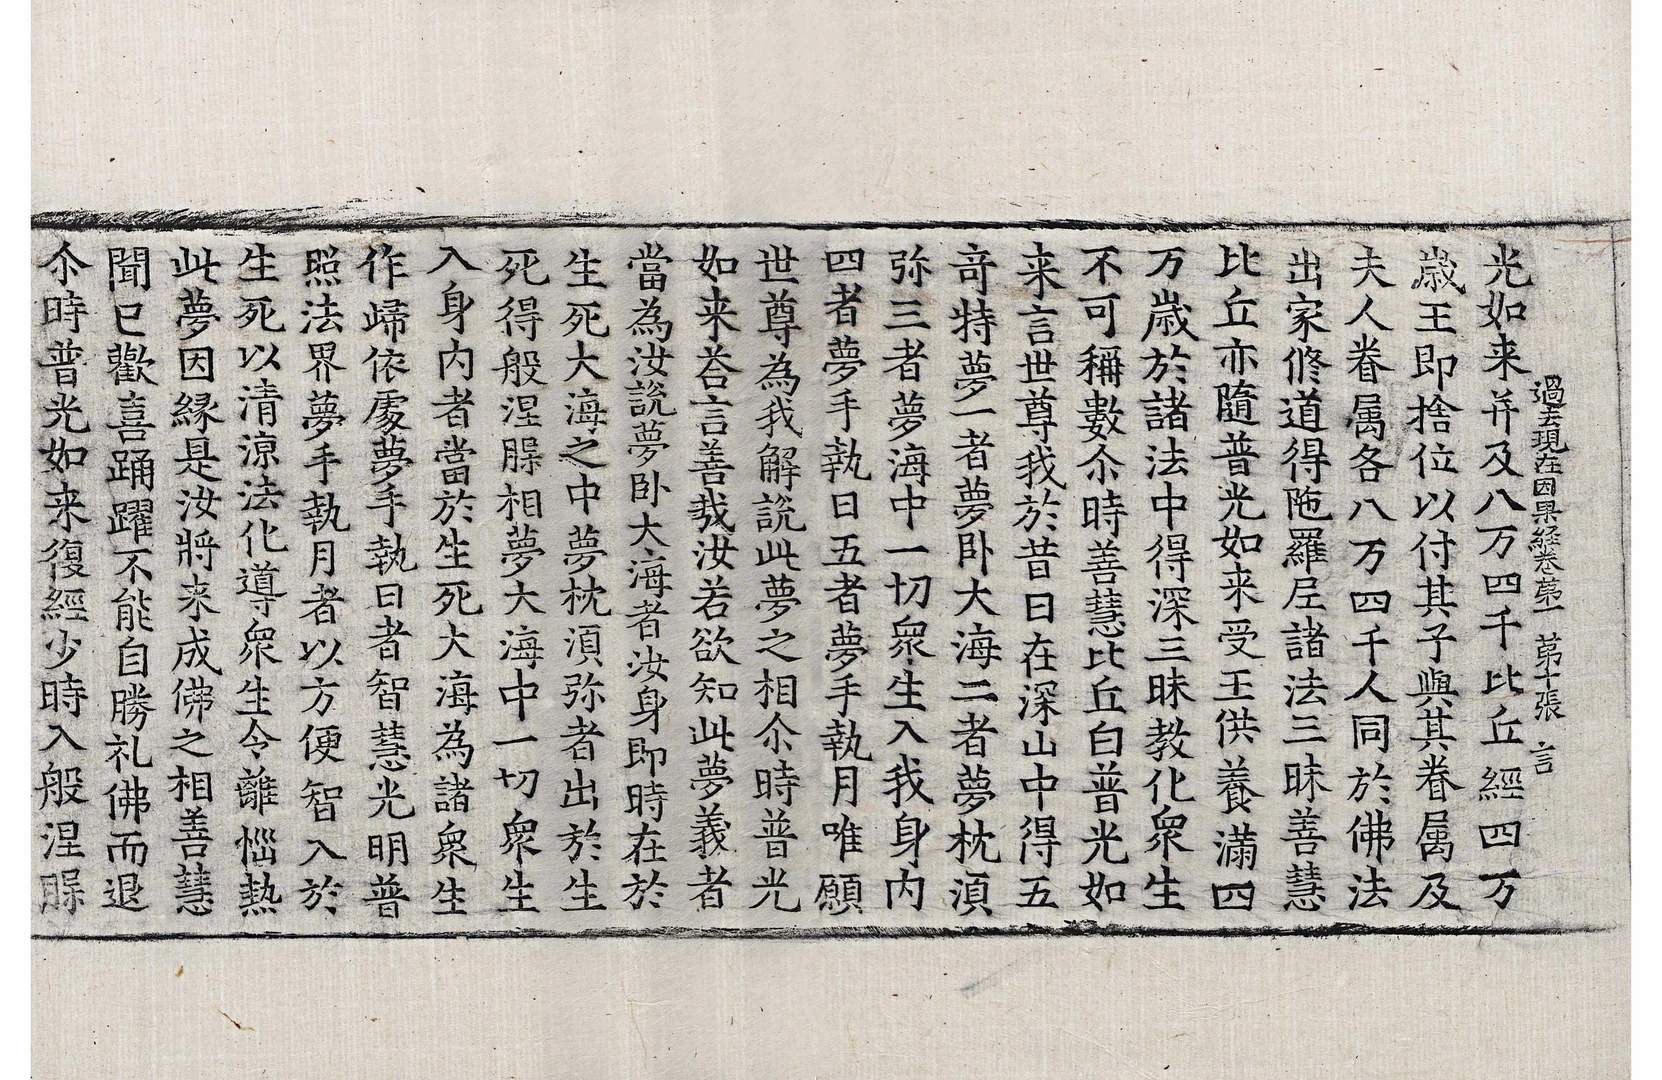 過去現在因果經卷苐一 苐十張 言
光如来并及八万四千比丘經四万
歲王即捨位以付其子與其眷属及
夫人眷属各八万四千人同於佛法
出家修道得陁羅尼諸法三昧善慧
比丘亦隨普光如来受王供養滿四
万歲於諸法中得深三昧教化衆生
不可稱數尒時善慧比丘白普光如
来言世尊我於昔日在深山中得五
竒特夢一者夢卧大海二者夢枕湏
弥三者夢海中一切衆生入我身内
四者夢手執日五者夢手執月唯願
世尊為我解說此夢之相尒時普光
如来荅言善哉汝若欲知此夢義者
當為汝說夢卧大海者汝身即時在於
生死大海之中夢枕湏弥者出於生
死得般涅槃相夢大海中一切衆生
入身内者當於生死大海為諸衆生
作歸依處夢手執日者智慧光明普
照法界夢手執月者以方便智入於
生死以清涼法化導衆生令離惱熱
此夢因縁是汝將来成佛之相善慧
聞已歡喜踊躍不能自勝礼佛而退
尒時普光如来復經少時入般涅槃